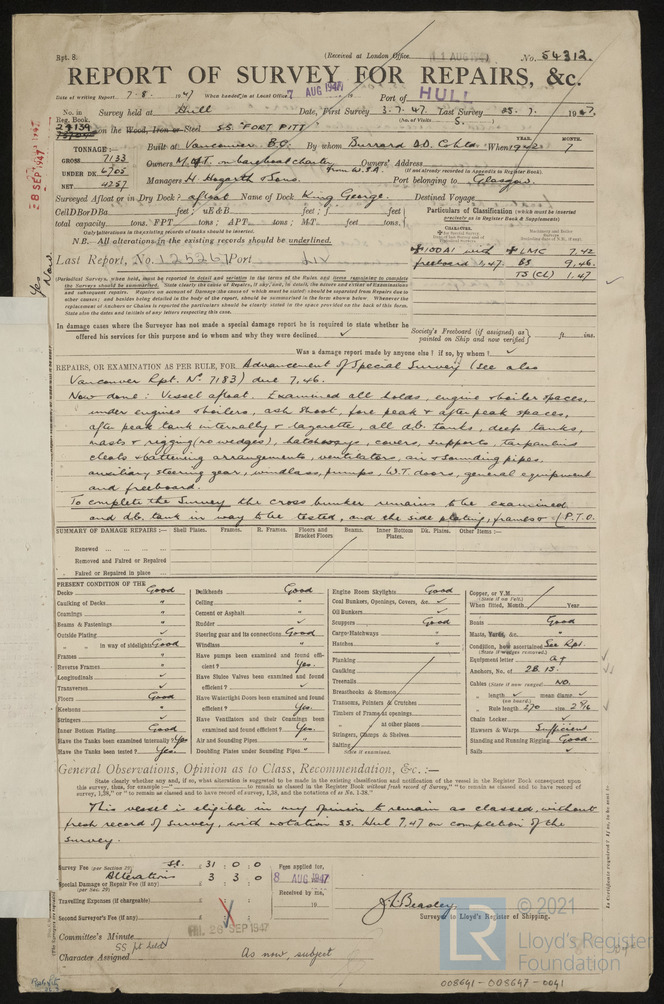 Rpt. 8.
(Received at London Office 11 AUG 1947
No. 54312.
REPORT OF SURVEY FOR REPAIRS, &c.
Date of writing Report 7.8. 1947 When handed in at Local Office 7 AUG 1947 Port of HULL
No. in Reg. Book. Survey held at Hull Date, First Survey 3.7.47. Last Survey 25.7. 1947.
(No. of Visits 5.)
24139 on the Wood, Iron or Steel S.S. "FORT PITT"
TONNAGE:—
GROSS 7133
UNDER DK. 6705
NET 4257
Built at Vancouver B.C. By whom Burrard D.D. Co Ltd. When 1942 7
YEAR. MONTH.
Owners M.O.T. on bareboat charter from W.S.A. Owners' Address
(if not already recorded in Appendix to Register Book).
Managers H. Hogarth & Sons. Port belonging to Glasgow.
Surveyed Afloat or in Dry Dock? afloat Name of Dock King George. Destined Voyage
Cell DBorDBa feet; uE&B feet; f feet
total capacity tons. FPT tons; APT tons; MT feet tons.
N.B. All alterations in the existing records should be underlined.
Particulars of Classification (which must be inserted precisely as in Register Book & Supplements)
✠100A1 with ✠LMC 7.42
freeboard 1.47 BS 9.46.
TS (CL) 1.47
Last Report, No. 12526 Port Liv
28 SEP 1947
Yes
Now.
In damage cases where the Surveyor has not made a special damage report he is required to state whether he
offered his services for this purpose and to whom and why they were declined
Society's Freeboard (if assigned) as painted on Ship and now verified ft ins.
Was a damage report made by anyone else? if so, by whom?
REPAIRS, OR EXAMINATION AS PER RULE, FOR Advancement of Special Survey (see also
Vancouver Rpt. No 7183) due 7.46.
Now done: Vessel afloat. Examined all holds, engine & boiler spaces,
under engines & boilers, ash shoot, fore peak & after peak spaces,
after peak tank internally & lazarette, all d.b. tanks, deep tanks,
masts & rigging (no wedges), hatchways, covers, supports, tarpaulins
cleats & battening arrangements, ventilators, air & sounding pipes,
auxiliary steering gear, windlass, pumps, W.T. doors, general equipment
and freeboard.
To complete the Survey the cross bunker remains to be examined
and d.b. tank in way to be tested, and the side plating, frames & (P.T.O.
SUMMARY OF DAMAGE REPAIRS:— Shell Plates. Frames. R. Frames. Floors and Bracket Floors Beams. Inner Bottom Plates. Dk. Plates. Other Items:—
Renewed
Removed and Faired or Repaired
Faired or Repaired in place
PRESENT CONDITION OF THE
Decks Good
Caulking of Decks "
Coamings "
Beams & Fastenings "
Outside Plating ✓
" " in way of sidelights Good
Frames "
Reverse Frames "
Longitudinals ✓
Transverses ✓
Floors Good
Keelsons "
Stringers ✓
Inner Bottom Plating Good
Have the Tanks been examined internally? Yes
Have the Tanks been tested? Yes.
Bulkheads Good
Ceiling "
Cement or Asphalt "
Rudder ✓
Steering gear and its connections Good
Windlass "
Have pumps been examined and found efficient? Yes.
Have Sluice Valves been examined and found efficient? ✓
Have Watertight Doors been examined and found efficient? Yes.
Have Ventilators and their Coamings been examined and found efficient? Yes.
Air and Sounding Pipes "
Doubling Plates under Sounding Pipes "
Engine Room Skylights Good
Coal Bunkers, Openings, Covers, &c. ✓
Oil Bunkers ✓
Scuppers Good
Cargo-Hatchways "
Hatches "
Planking
Caulking
Treenails
Breasthooks & Stemson
Transoms, Pointers & Crutches
Timbers of Frame at openings
" " at other places
Stringers, Clamps & Shelves
Salting
(State if examined.
Copper, or Y.M.
(State if on Felt.)
When fitted, Month Year
Boats Good
Masts, Yards, &c. "
Condition, how ascertained See Rpt.
(State if wedges removed.)
Equipment letter at
Anchors, No. of 2B. 1S.
Cables (State if now ranged) NO.
" length mean diame.
(on board.)
" Rule length 270 size 2 1/16
Chain Locker ✓
Hawsers & Warps Sufficient
Standing and Running Rigging Good.
Sails ✓
General Observations, Opinion as to Class, Recommendation, &c. :—
This vessel is eligible in my opinion to remain as classed, without
fresh record of survey, with notation SS. Hul 7.47 on completion of the
survey.
Survey Fee (per Section 29) SS. £ 31 : 0 : 0
Alterations 3 3 0
Special Damage or Repair Fee (if any) (per Sec. 29)
Travelling Expenses (if chargeable)
Second Surveyor's Fee (if any)
Fees applied for,
8 AUG 1947
Received by me,
19
J. L. Beasley
Surveyor to Lloyd's Register of Shipping.
Committee's Minute FRI. 26 SEP 1947
SS pt held
Character Assigned As now, subject
© 2021
LR
Lloyd's Register
Foundation
008641-008647-0041